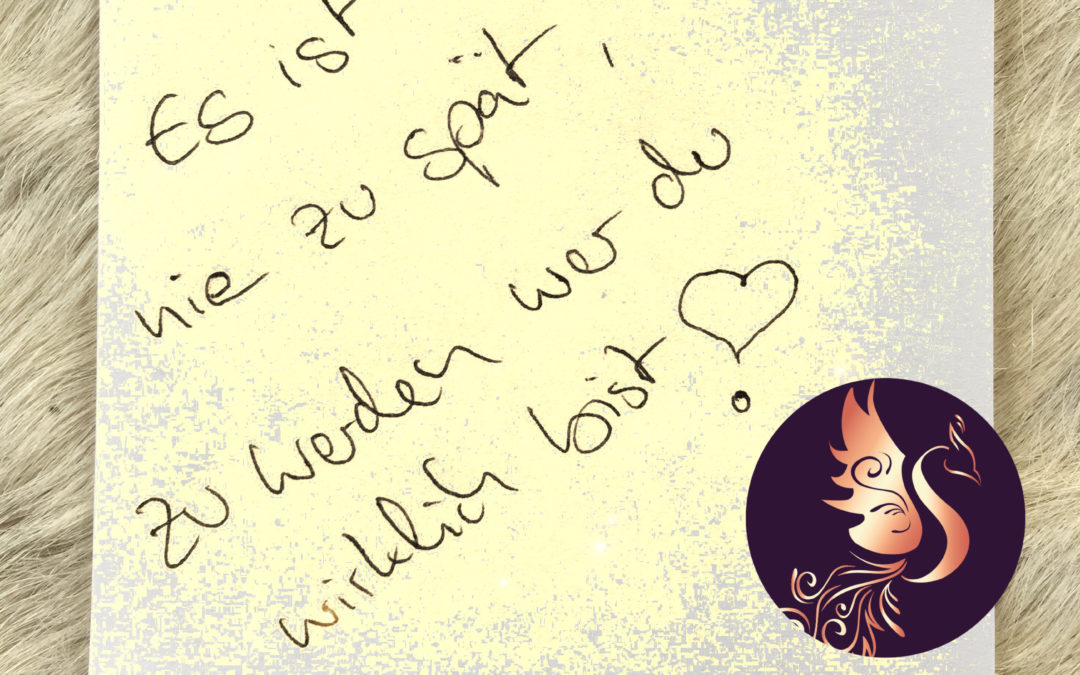 Es ist
nie zu spät,
zu werden wer du
wirklich bist